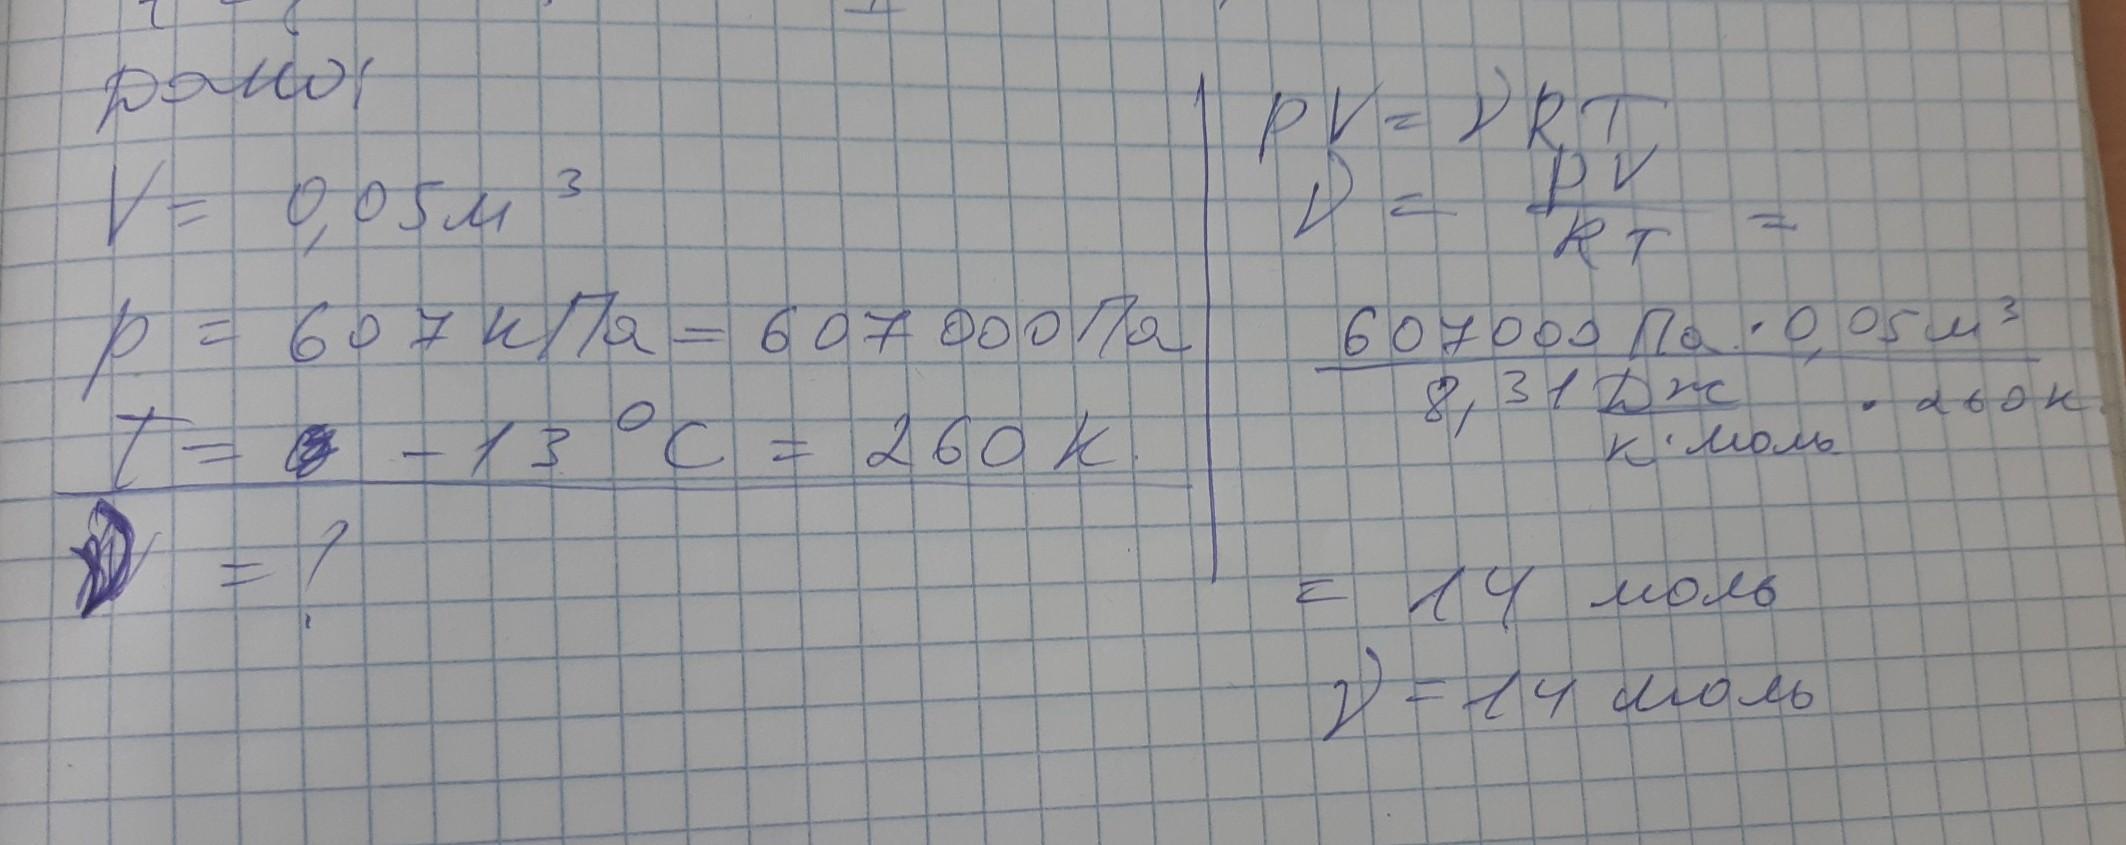 дано:
V = 0,05 м³
p = 607 кПа = 607 000 Па
T = - 13 °C = 260 K.
ν = ?
PV = νRT
ν = PV / RT =
607000 Па · 0,05 м³ / 8,31 Дж / К·моль · 260 К.
= 14 моль
ν = 14 моль